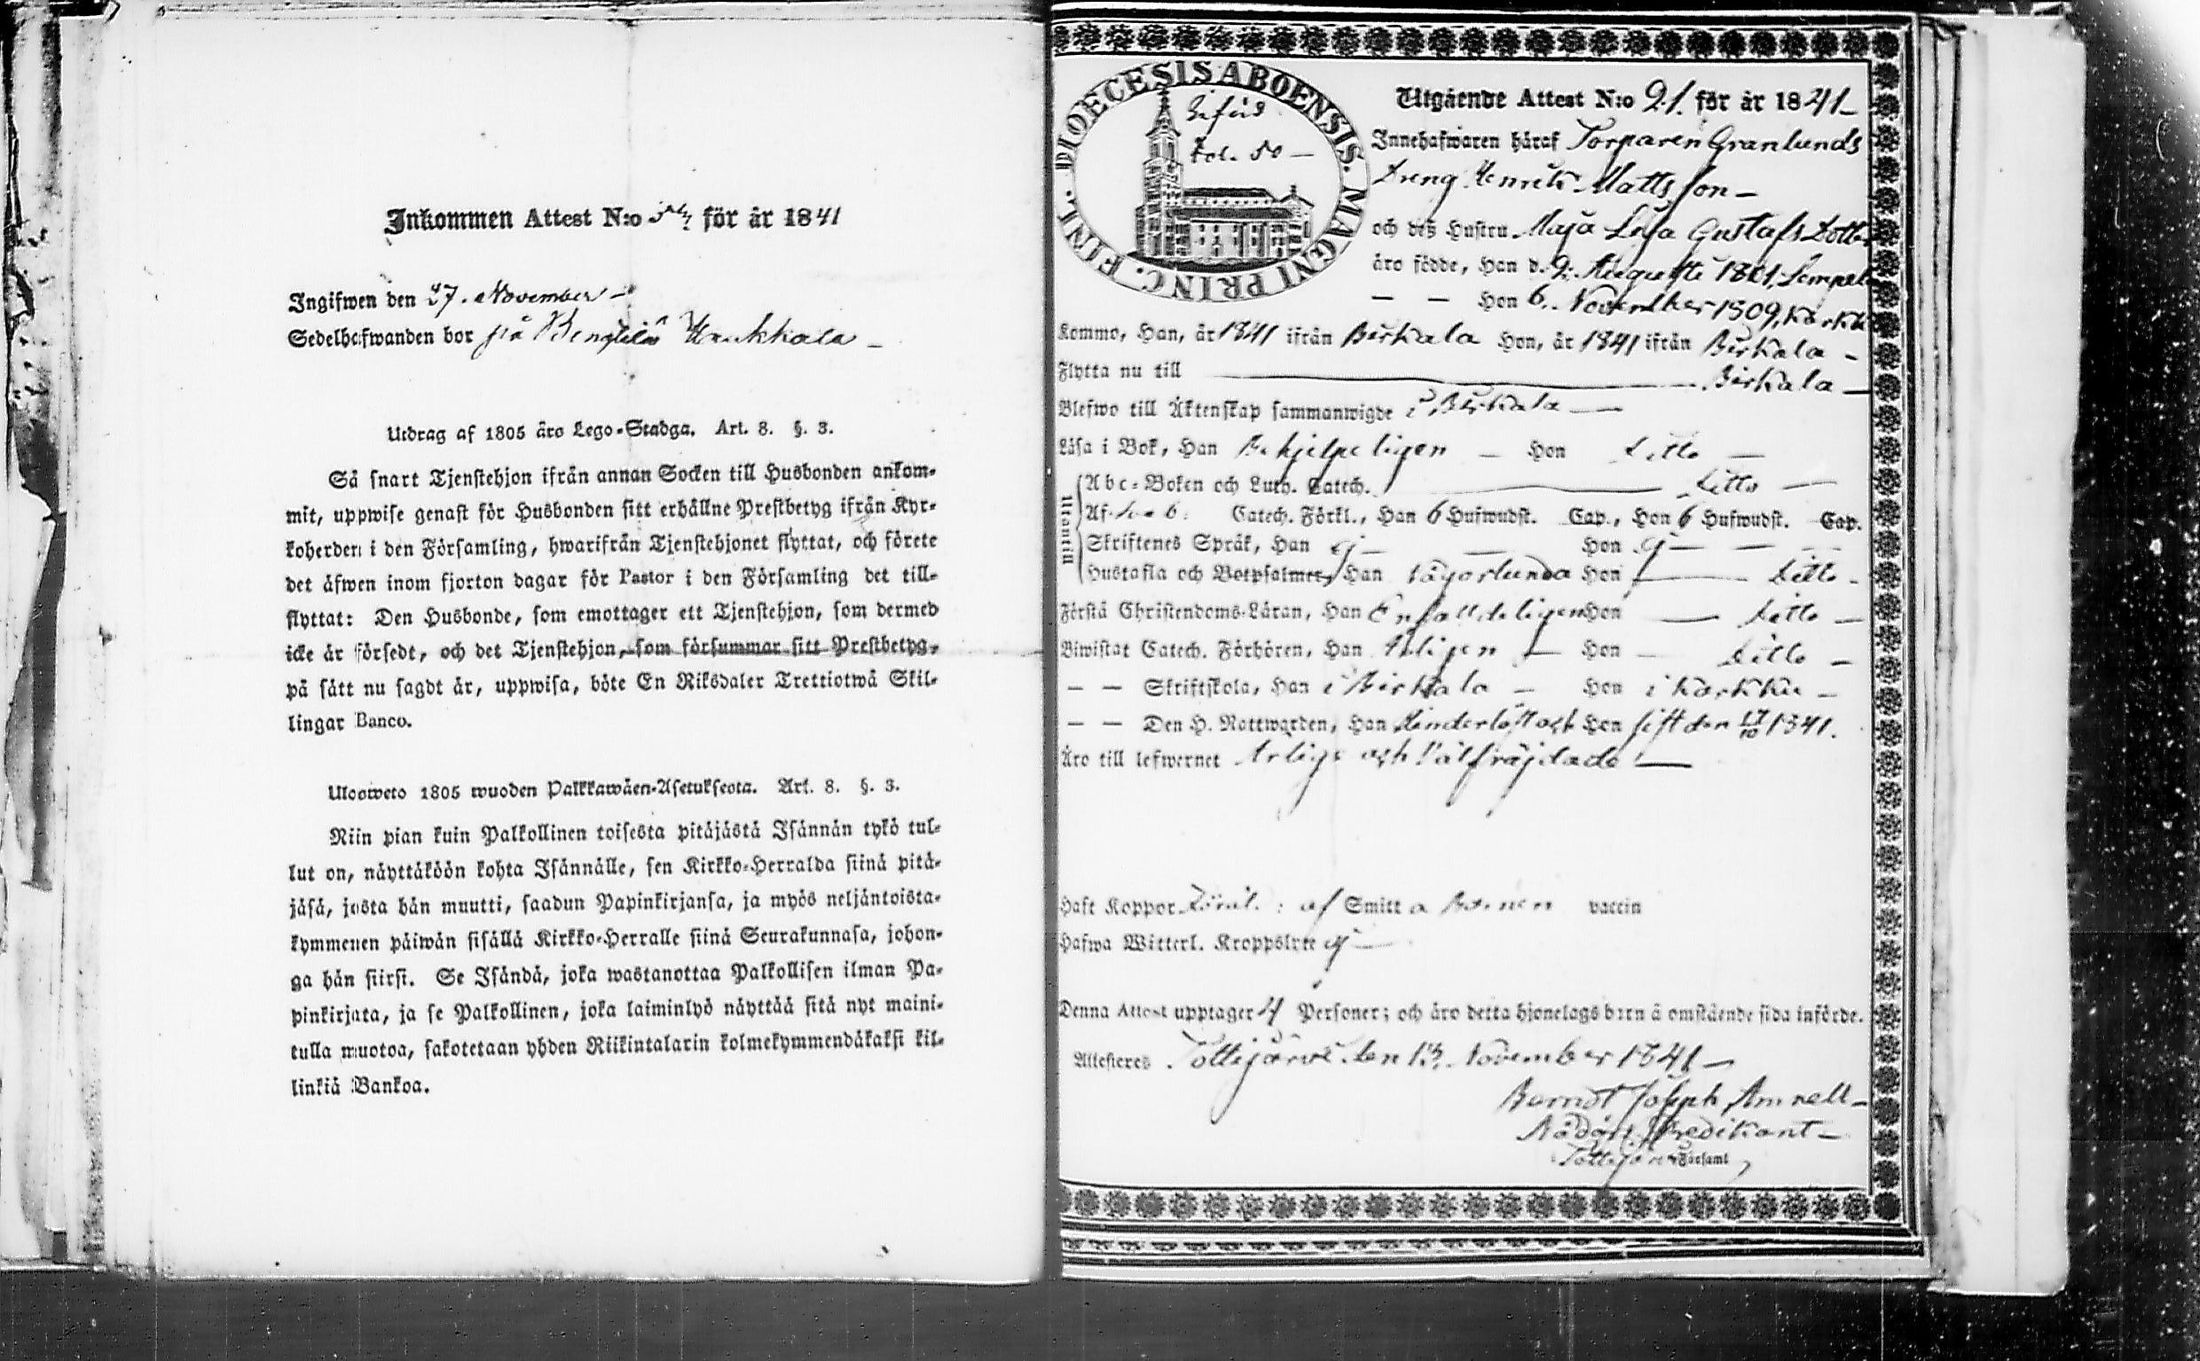 Inkommen Attest N:o för år 1841
Ingifwen den 27. November
Sedelhafwanden bor på Bengtilä Haukkala
Utdrag af 1805 års Lego-Stadga. Art. 8. §. 3.
Så snart Tjenstehjon ifrån annan Socken till Husbonden ankom-
mit, uppwise genast för Husbonden sitt erhållne Prestbetyg ifrån Kyr-
koherden i den Församling, hwarifrån Tjenstehjonet flyttat, och förete
det äfwen inom fjorton dagar för Pastor i den Församling det till-
flyttat: Den Husbonde, som emottager ett Tjenstehjon, som dermed
icke är försedt, och det Tjenstehjon, som försummar sitt Prestbetyg,
på sätt nu sagdt är, uppwisa, böte En Riksdaler Trettiotwå Skil-
lingar Banco.
Ulosweto 1805 wuoden Palkkawäen-Asetuksesta. Art. 8. §. 3.
Niin pian kuin Palkollinen toisesta pitäjästä Isännän tykö tul-
lut on, näyttäköön kohta Isännälle, sen Kirkko-Herralda siinä pitä-
jäsä, josta hän muutti, saadun Papinkirjansa, ja myös neljäntoista-
kymmenen päiwän sisällä Kirkko-Herralle siinä Seurakunnasa, johon-
ga hän siirsi. Se Isändä, joka wastanottaa Palkollisen ilman Pa-
pinkirjata, ja se Palkollinen, joka laiminlyö näyttää sitä nyt maini-
tulla muotoa, sakotetaan yhden Riikintalarin kolmekymmendäkaksi kil-
linkiä Bankoa.
DIOECESIS ABOENSIS. MAGNI PRINC. FINL.
Fol. 50
Utgående Attest N:o 21. för år 1841
Innehafwaren häraf Torparen Granlunds
Dreng Henrik Matts son
och deß Hustru Maja Lisa Gustafs Dotter
äro födde, Han d. 9. Augusti 1811, Lempela
— — Hon 6. November 1809, Karkku
Kommo, Han, år 1841 ifrån Birkala Hon, år 1841 ifrån Birkala
Flytta nu till Birkala
Blefwo till Äktenskap sammanwigde i Birkala
Läsa i Bok, Han Behjelpeligen Hon Ditto
Utantill
Abc-Boken och Luth. Catech. Ditto
Af 6 Catech. Förkl., Han 6 Hufwudst. Cap., Hon 6 Hufwudst. Cap.
Skriftenes Språk, Han ej Hon ej
Hustafla och Botpsalmer, Han någorlunda Hon Ditto
Förstå Christendoms-Läran, Han Enfalldeligen Hon Ditto
Biwistat Catech. Förhören, Han Årligen Hon Ditto
— — Skriftskola, Han i Birkala Hon i Karkku
— — Den H. Nattwarden, Han Hinderlöst och Hon sist den 17/10 1841.
Äro till lefwernet Ärlige och Välfräjdade
Haft Koppor af Smitta vaccin
Hafwa Witterl. Kroppslyte ej
Denna Attest upptager 4 Personer; och äro detta hjonelags barn å omstående sida införde.
Attesteres Tottijärvi den 13. November 1841
Berndt Joseph Amnell
Nådårs Predikant
Tottijärvi Församl